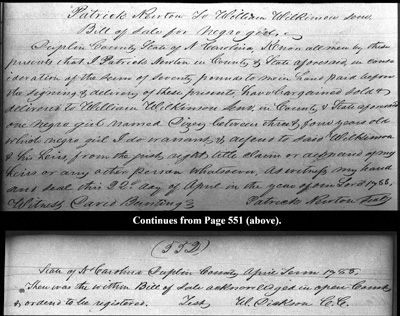 Patrick Newton To William Wilkinson senr.
Bill of Sale for Negro girl,
Duplin County State of N Carolina, Know all men by these
presents that I Patrick Newton in County & State aforesaid in cons
ideration of the sum of seventy pounds to me in hand paid upon
the signing & delivery of these presents, have bargained sold &
delivered to William Wilkinson Senr. in County & State aforesaid
one negro girl named between three & four years old
which negro girl I do warrant & defend to said Wilkinson
& his heirs, from the just right title claim or demand of my
heirs or any other person whatsoever, As witness my hand
and seal this 22d day of April in the year of our Lord 1786.
Witness David Bunting Patrick Newton
Continues from Page 551 (above).
(552)
State of N Carolina Duplin County April Term 1786.
Then was the within Bill of Sale acknowledged in open Court
& ordered to be registered. Test W. Dickson C.C.